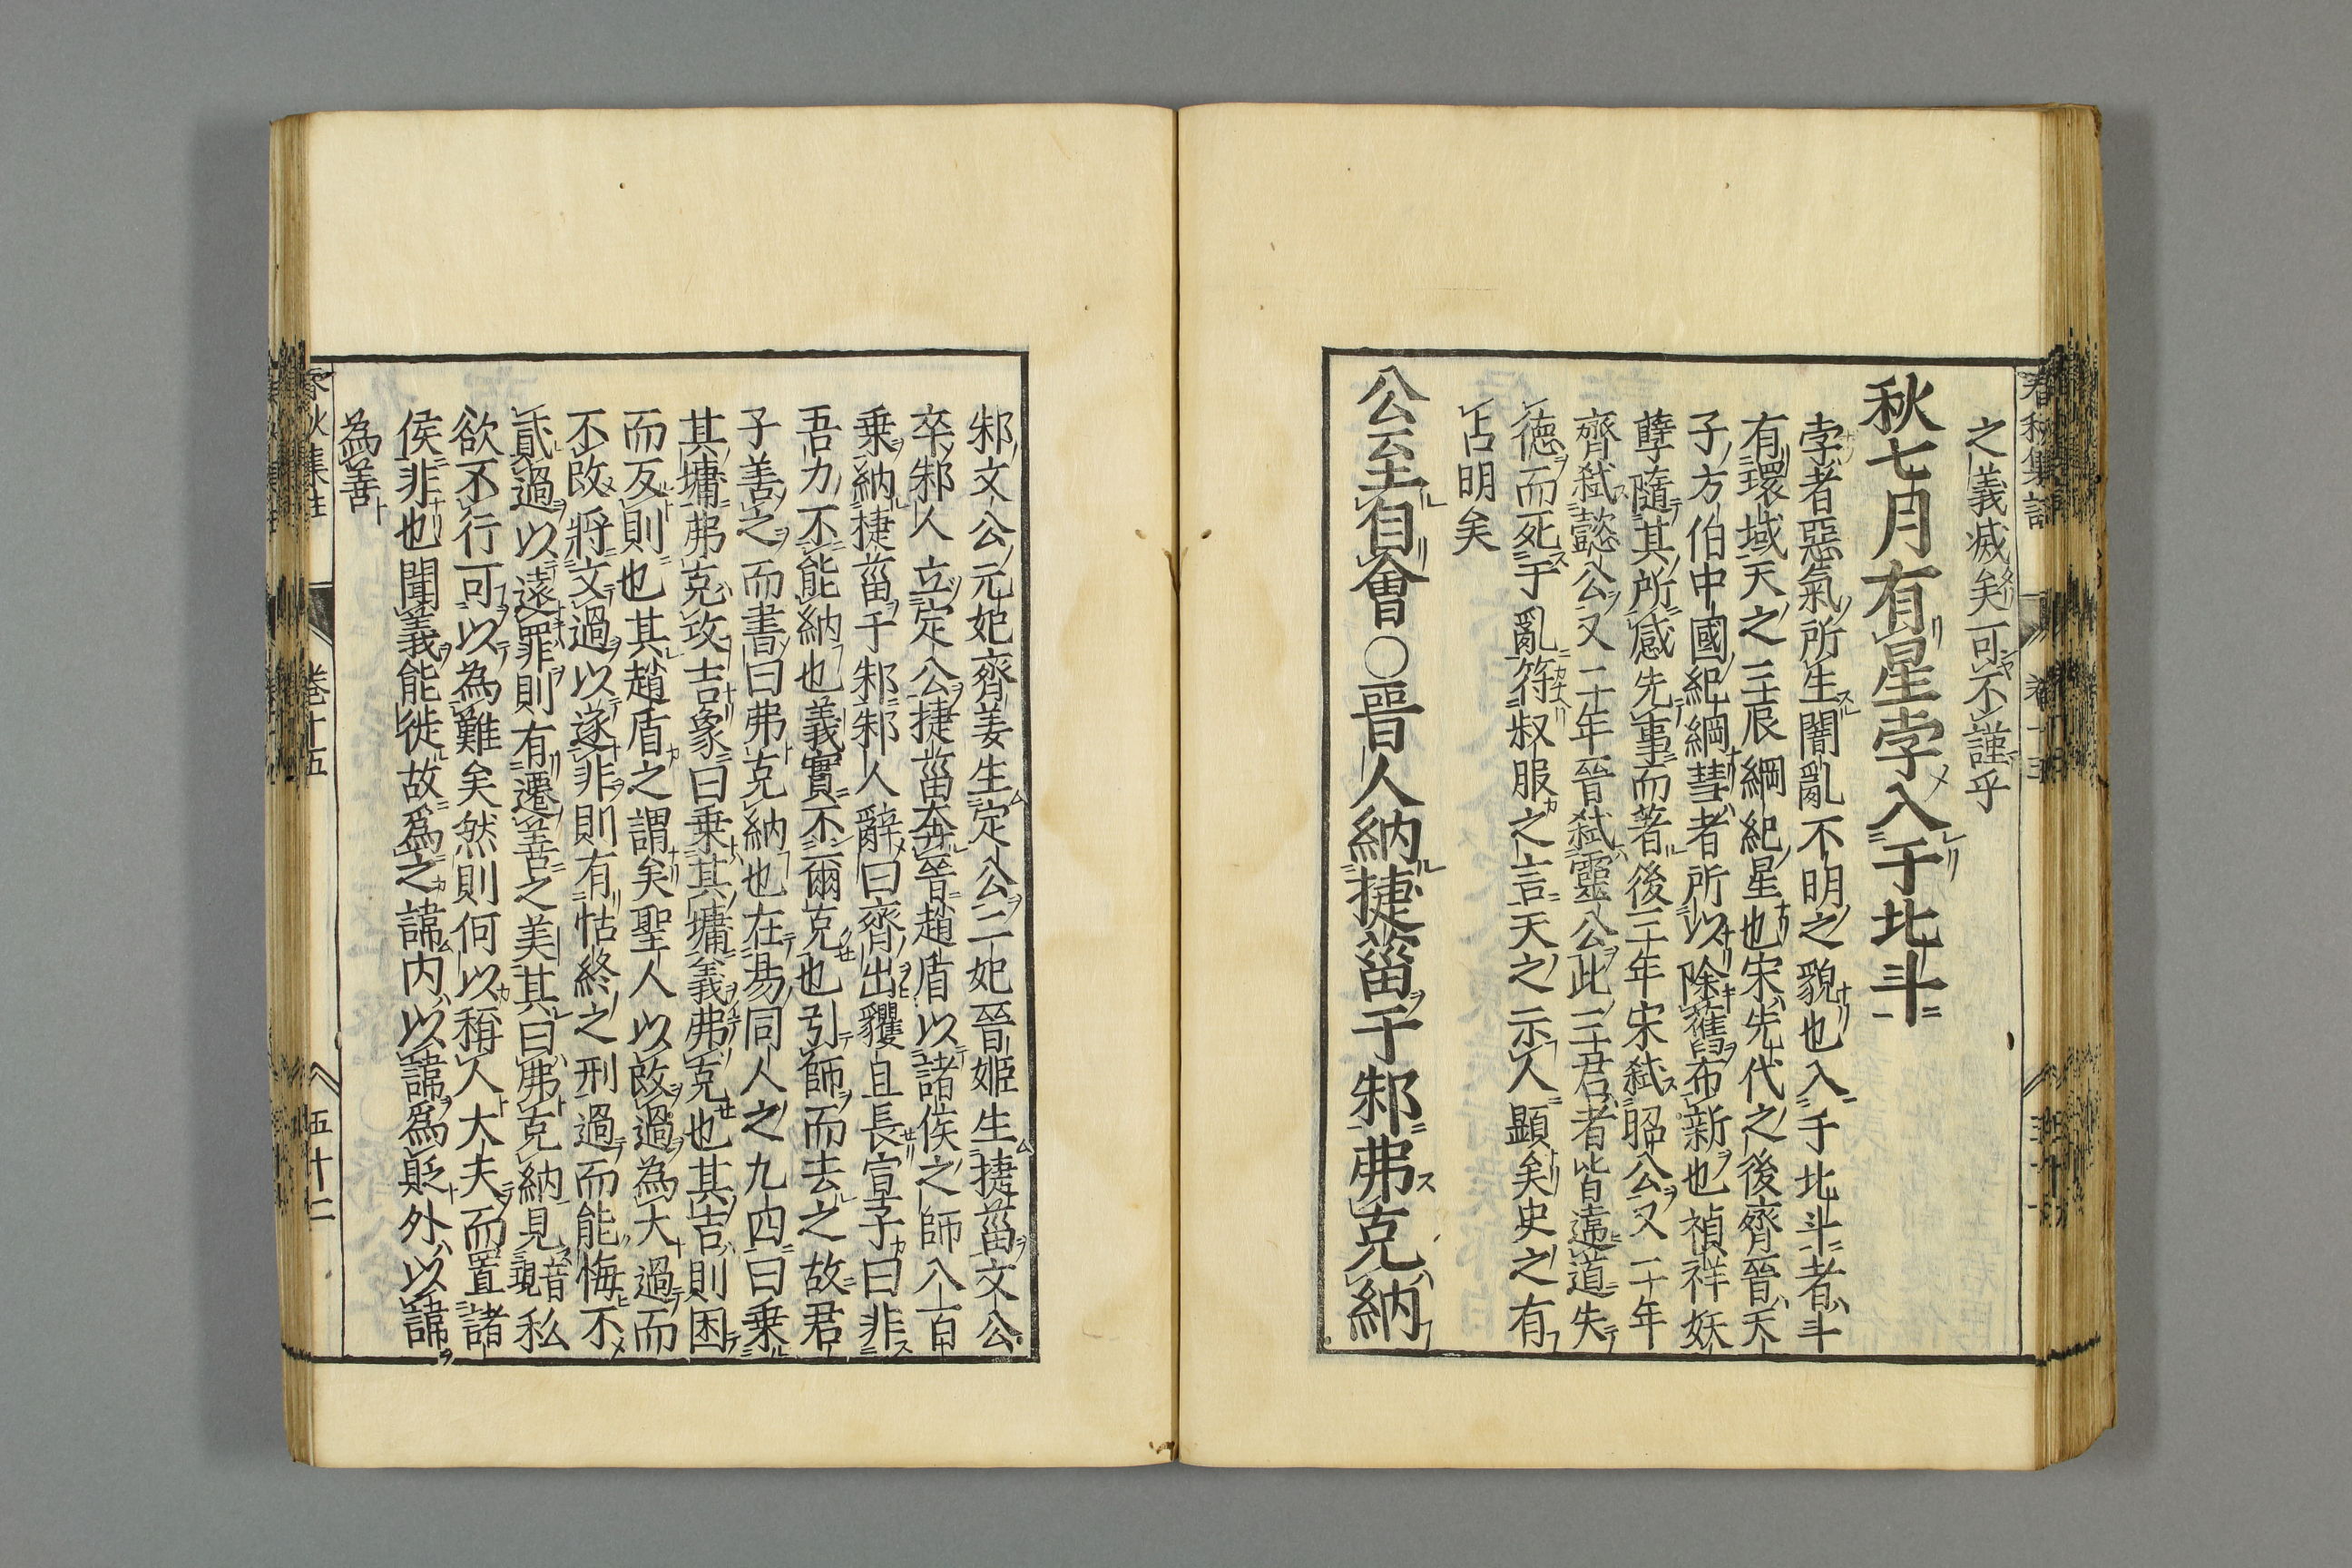 之義滅矣可不謹乎
秋七月有星孛入于北斗
孛者惡氣所生闇亂不明之貌也入于北斗者斗
有環域天之三辰綱紀星也宋先代之後齊晉天
子方伯中國紀綱彗者所以除舊布新也禎祥妖
孽隨其所感先事而著後三年宋弑昭公又二年
齊弑懿公又二年晉弑靈公此三君者皆違道失
德而死于亂符叔服之言天之示人顯矣史之有
占明矣
公至自會○晉人納捷菑于邾弗克納
邾文公元妃齊姜生定公二妃晉姬生捷菑文公
卒邾人立定公捷菑奔晉趙盾以諸侯之師八百
乗納捷菑于邾邾人辭曰齊出貜且長宣子曰非
吾力不能納也義實不爾克也引師而去之故君
子善之而書曰弗克納也在昜同人之九四曰乗
其墉弗克攻吉象曰乗其墉義弗克也其吉則困
而反則也其趙盾之謂矣聖人以改過為大過而
不改將文過以遂非則有怙終之刑過而能悔不
貳過以遠罪則有遷善之美其曰弗克納見音現私
欲不行可以為難矣然則何以稱人大夫而置諸
侯非也聞義能徙故為之諱内以諱為貶外以諱
為善
春秋集註
卷十五
五十二